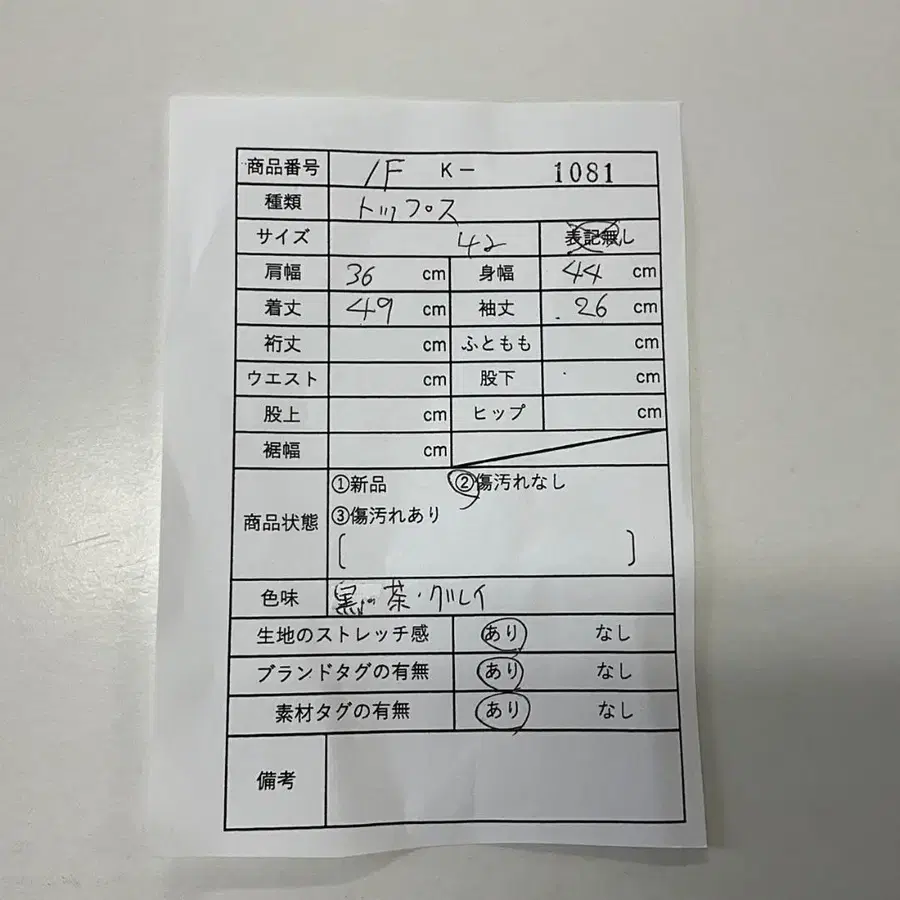 商品番号 1F K- 1081
種類 トップス
サイズ 42 表記無し
肩幅 36 cm 身幅 44 cm
着丈 49 cm 袖丈 26 cm
裄丈 cm ふともも cm
ウエスト cm 股下 cm
股上 cm ヒップ cm
裾幅 cm
①新品 ②傷汚れなし
商品状態 ③傷汚れあり
[ ]
色味 黒 茶・グレイ
生地のストレッチ感 あり なし
ブランドタグの有無 あり なし
素材タグの有無 あり なし
備考